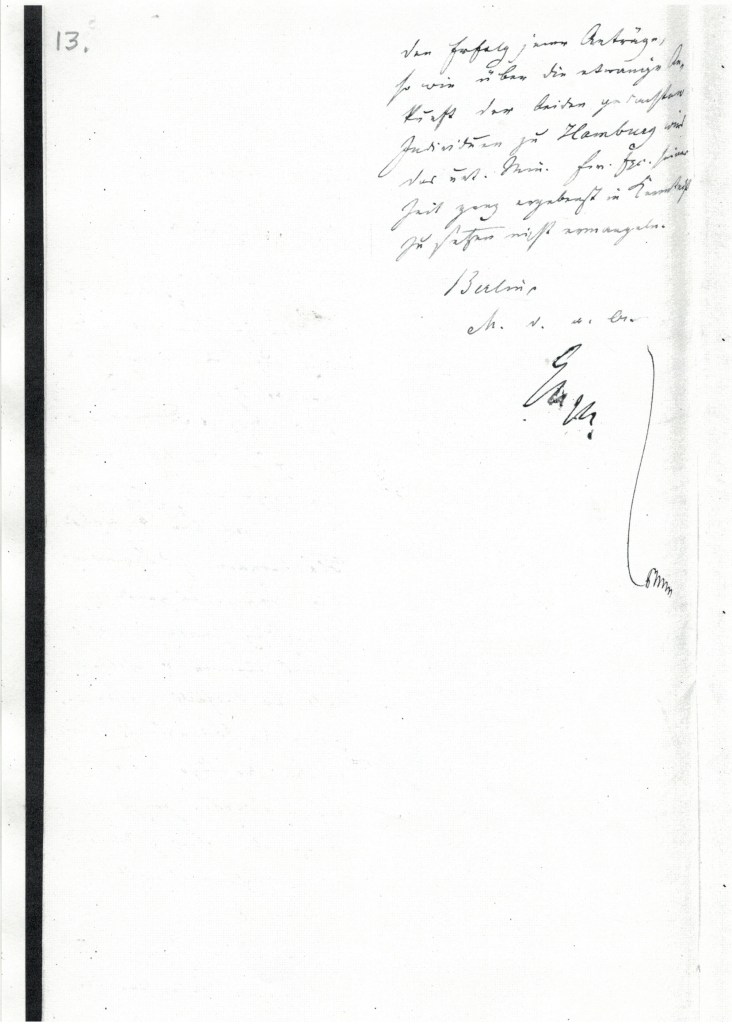 13.
den Erfolg jener Anträge,
so wie über die etwanige An-
kunft der beiden gedachten
Individuen zu Hamburg wird
das unt. Min. Ew. Exc. seiner
Zeit ganz ergebenst in Kenntniß
zu setzen nicht ermangeln.
Berlin,
M. d. a. A.